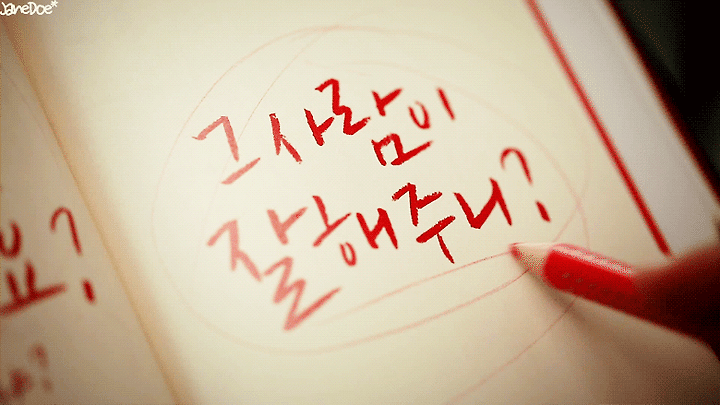 JaneDoe*
그 사람이
잘해주니?
요?